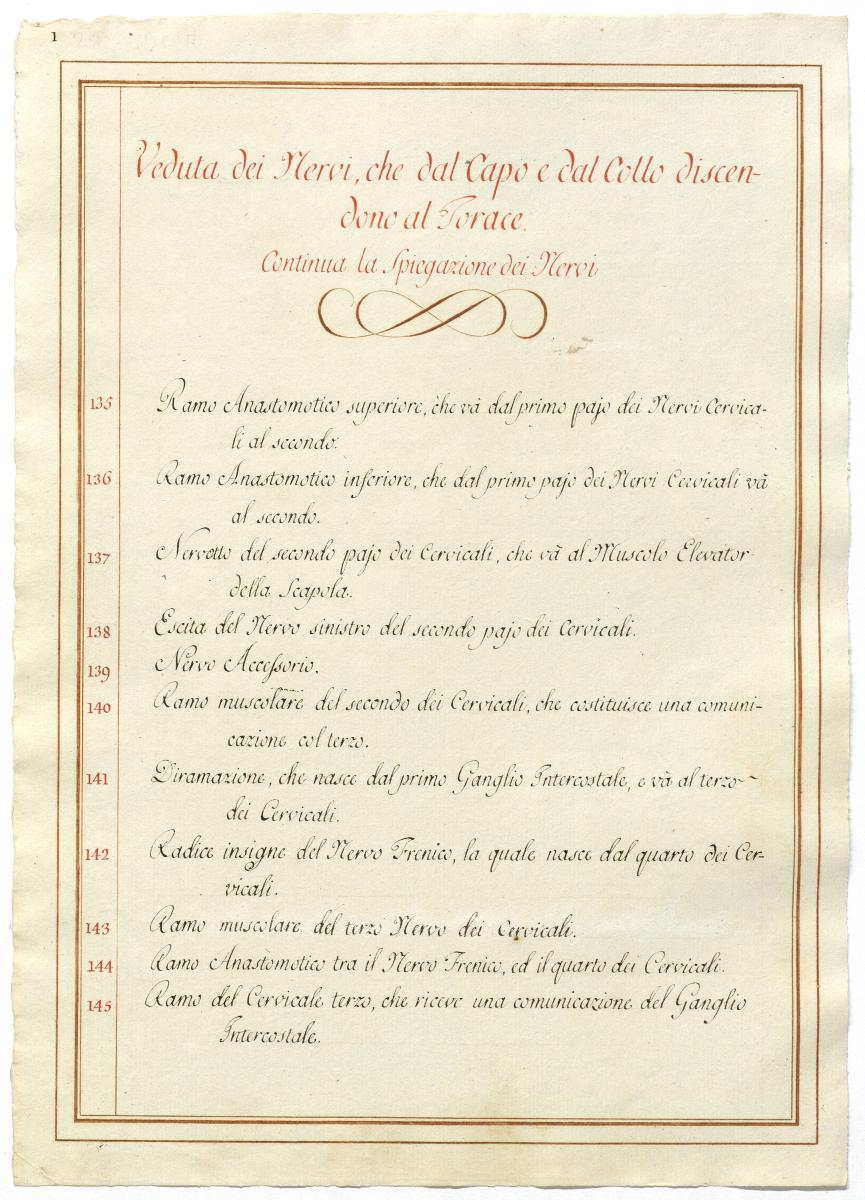 1
Veduta dei Nervi, che dal Capo e dal Collo discen-
dono al Torace.
Continua la Spiegazione dei Nervi
135 Ramo Anastomotico superiore, che và dal primo pajo dei Nervi Cervica-
li al secondo.
136 Ramo Anastomotico inferiore, che dal primo pajo dei Nervi Cervicali và
al secondo.
137 Nervetto del secondo pajo dei Cervicali, che và al Muscolo Elevator
della Scapola.
138 Escita del Nervo sinistro del secondo pajo dei Cervicali.
139 Nervo Accessorio.
140 Ramo muscolare del secondo dei Cervicali, che costituisce una comuni-
cazione col terzo.
141 Diramazione, che nasce dal primo Ganglio Intercostale, e và al terzo
dei Cervicali.
142 Radice insigne del Nervo Frenico, la quale nasce dal quarto dei Cer-
vicali.
143 Ramo muscolare del terzo Nervo dei Cervicali.
144 Ramo Anastomotico tra il Nervo Frenico, ed il quarto dei Cervicali.
145 Ramo del Cervicale terzo, che riceve una comunicazione del Ganglio
Intercostale.